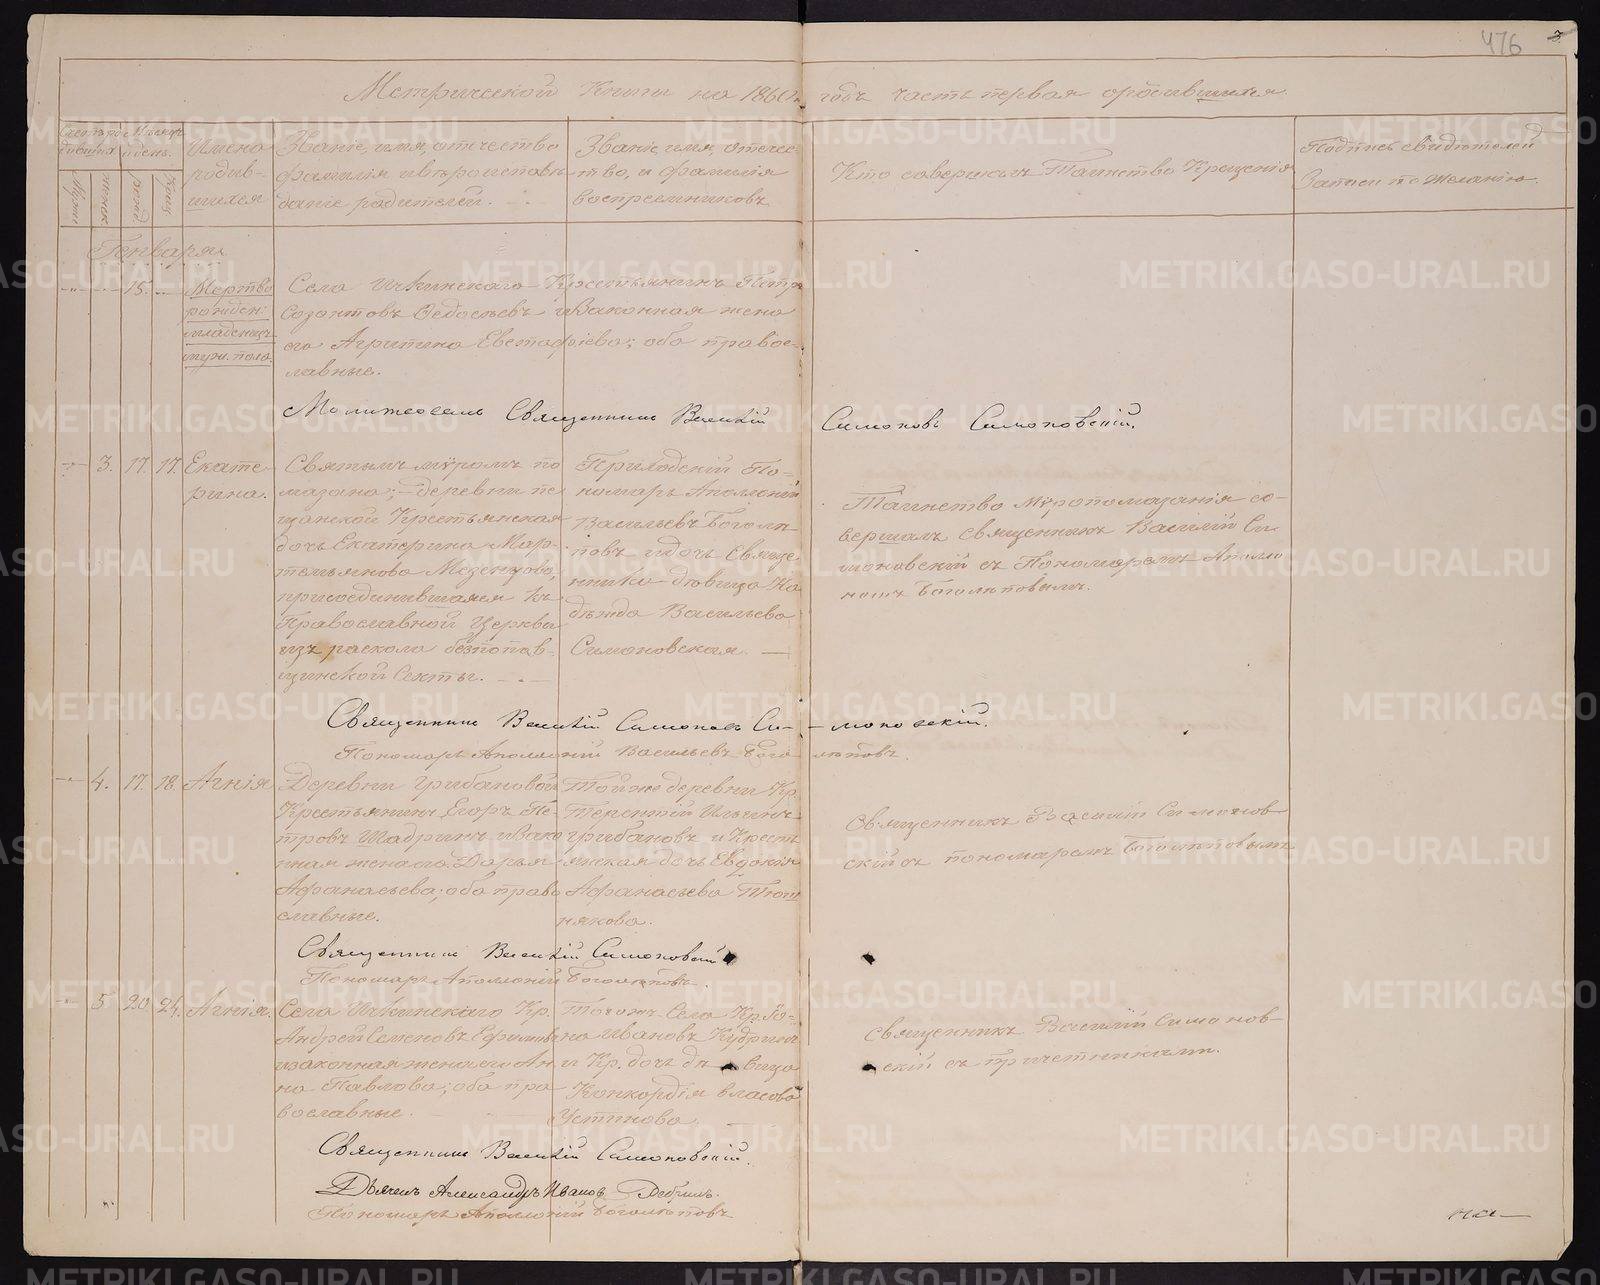 476
Метрической Книги на 186 годъ часть первая о родившихся
Счетъ ро Мѣсяцъ
дившихся и день.
Имена
родив-
шихся
Званіе, имя, отчество
фамилія и вѣроисповѣ
даніе родителей.
Званіе имя, отчес
тво, и фамилія
воспреемниковъ
Кто совершалъ Таинство Крещенія
Подпись свидѣтелей
Записи по желанію.
Генваря
15.
Мертво
рожден:
младенецъ
муж. пола.
Села Ичкинскаго Крестьянинъ Петр
Созонтовъ Ѳедосѣевъ и Законная жена
его Агрипина Евстафіева; оба право-
славные.
Молитвовалъ Священникъ Василій Симоновъ Симоновскій.
3. 17. 17. Екате-
рина.
Святымъ мѵромъ по
мазана; — деревни пе
щанской Крестьянская
дочь Екатерина Мар-
темьянова Мезенцова,
присоединившаяся къ
Православной Церкви
изъ раскола безпопов-
щинской Секты.
Приходскій По-
номарь Аполлоній
Васильевъ Боголѣ
повъ и дочь Священ
ника дѣвица На
дѣжда Васильева
Симоновская. —
Таинство Мѵропомазанія со-
вершалъ священникъ Василій Си
моновскій съ Пономаремъ Аполло
ніемъ Боголѣповымъ.
Священникъ Василій Симоновъ Си- — моновскій.
Пономарь Аполлоній Васильевъ Боголѣповъ.
4. 17. 18. Агнія
Деревни Грибановой
Крестьянинъ Егоръ Пе-
тровъ Шадринъ и зако
нная жена его Дарья
Афанасьева; оба право
славные.
Тойже деревни Кр.
Терентій Ильинъ
Грибановъ и Кресть
янская дочь Евдокія
Афанасьева Тюш
някова.
Священникъ Василій Симонов-
скій съ пономаремъ Боголѣповымъ
Священникъ Василій Симоновскій
Пономарь Аполлоній Боголѣповъ.
5 20. 24. Агнія.
Села Ичкинскаго Кр.
Андрей Семеновъ Ефимовъ
и законная жена его Ан
на Павлова; оба пра
вославные.
Тогожъ Села Кр. Ів-
на Ивановъ Кудринъ
и Кр. дочь дѣвица
Конкордія Власова
Устинова.
Священникъ Василій Симонов-
скій съ причетниками.
Священникъ Василій Симоновскій.
Дьячекъ Александръ Ивановъ
Пономарь Аполлоній Боголѣповъ
METRIKI.GASO-URAL.RU